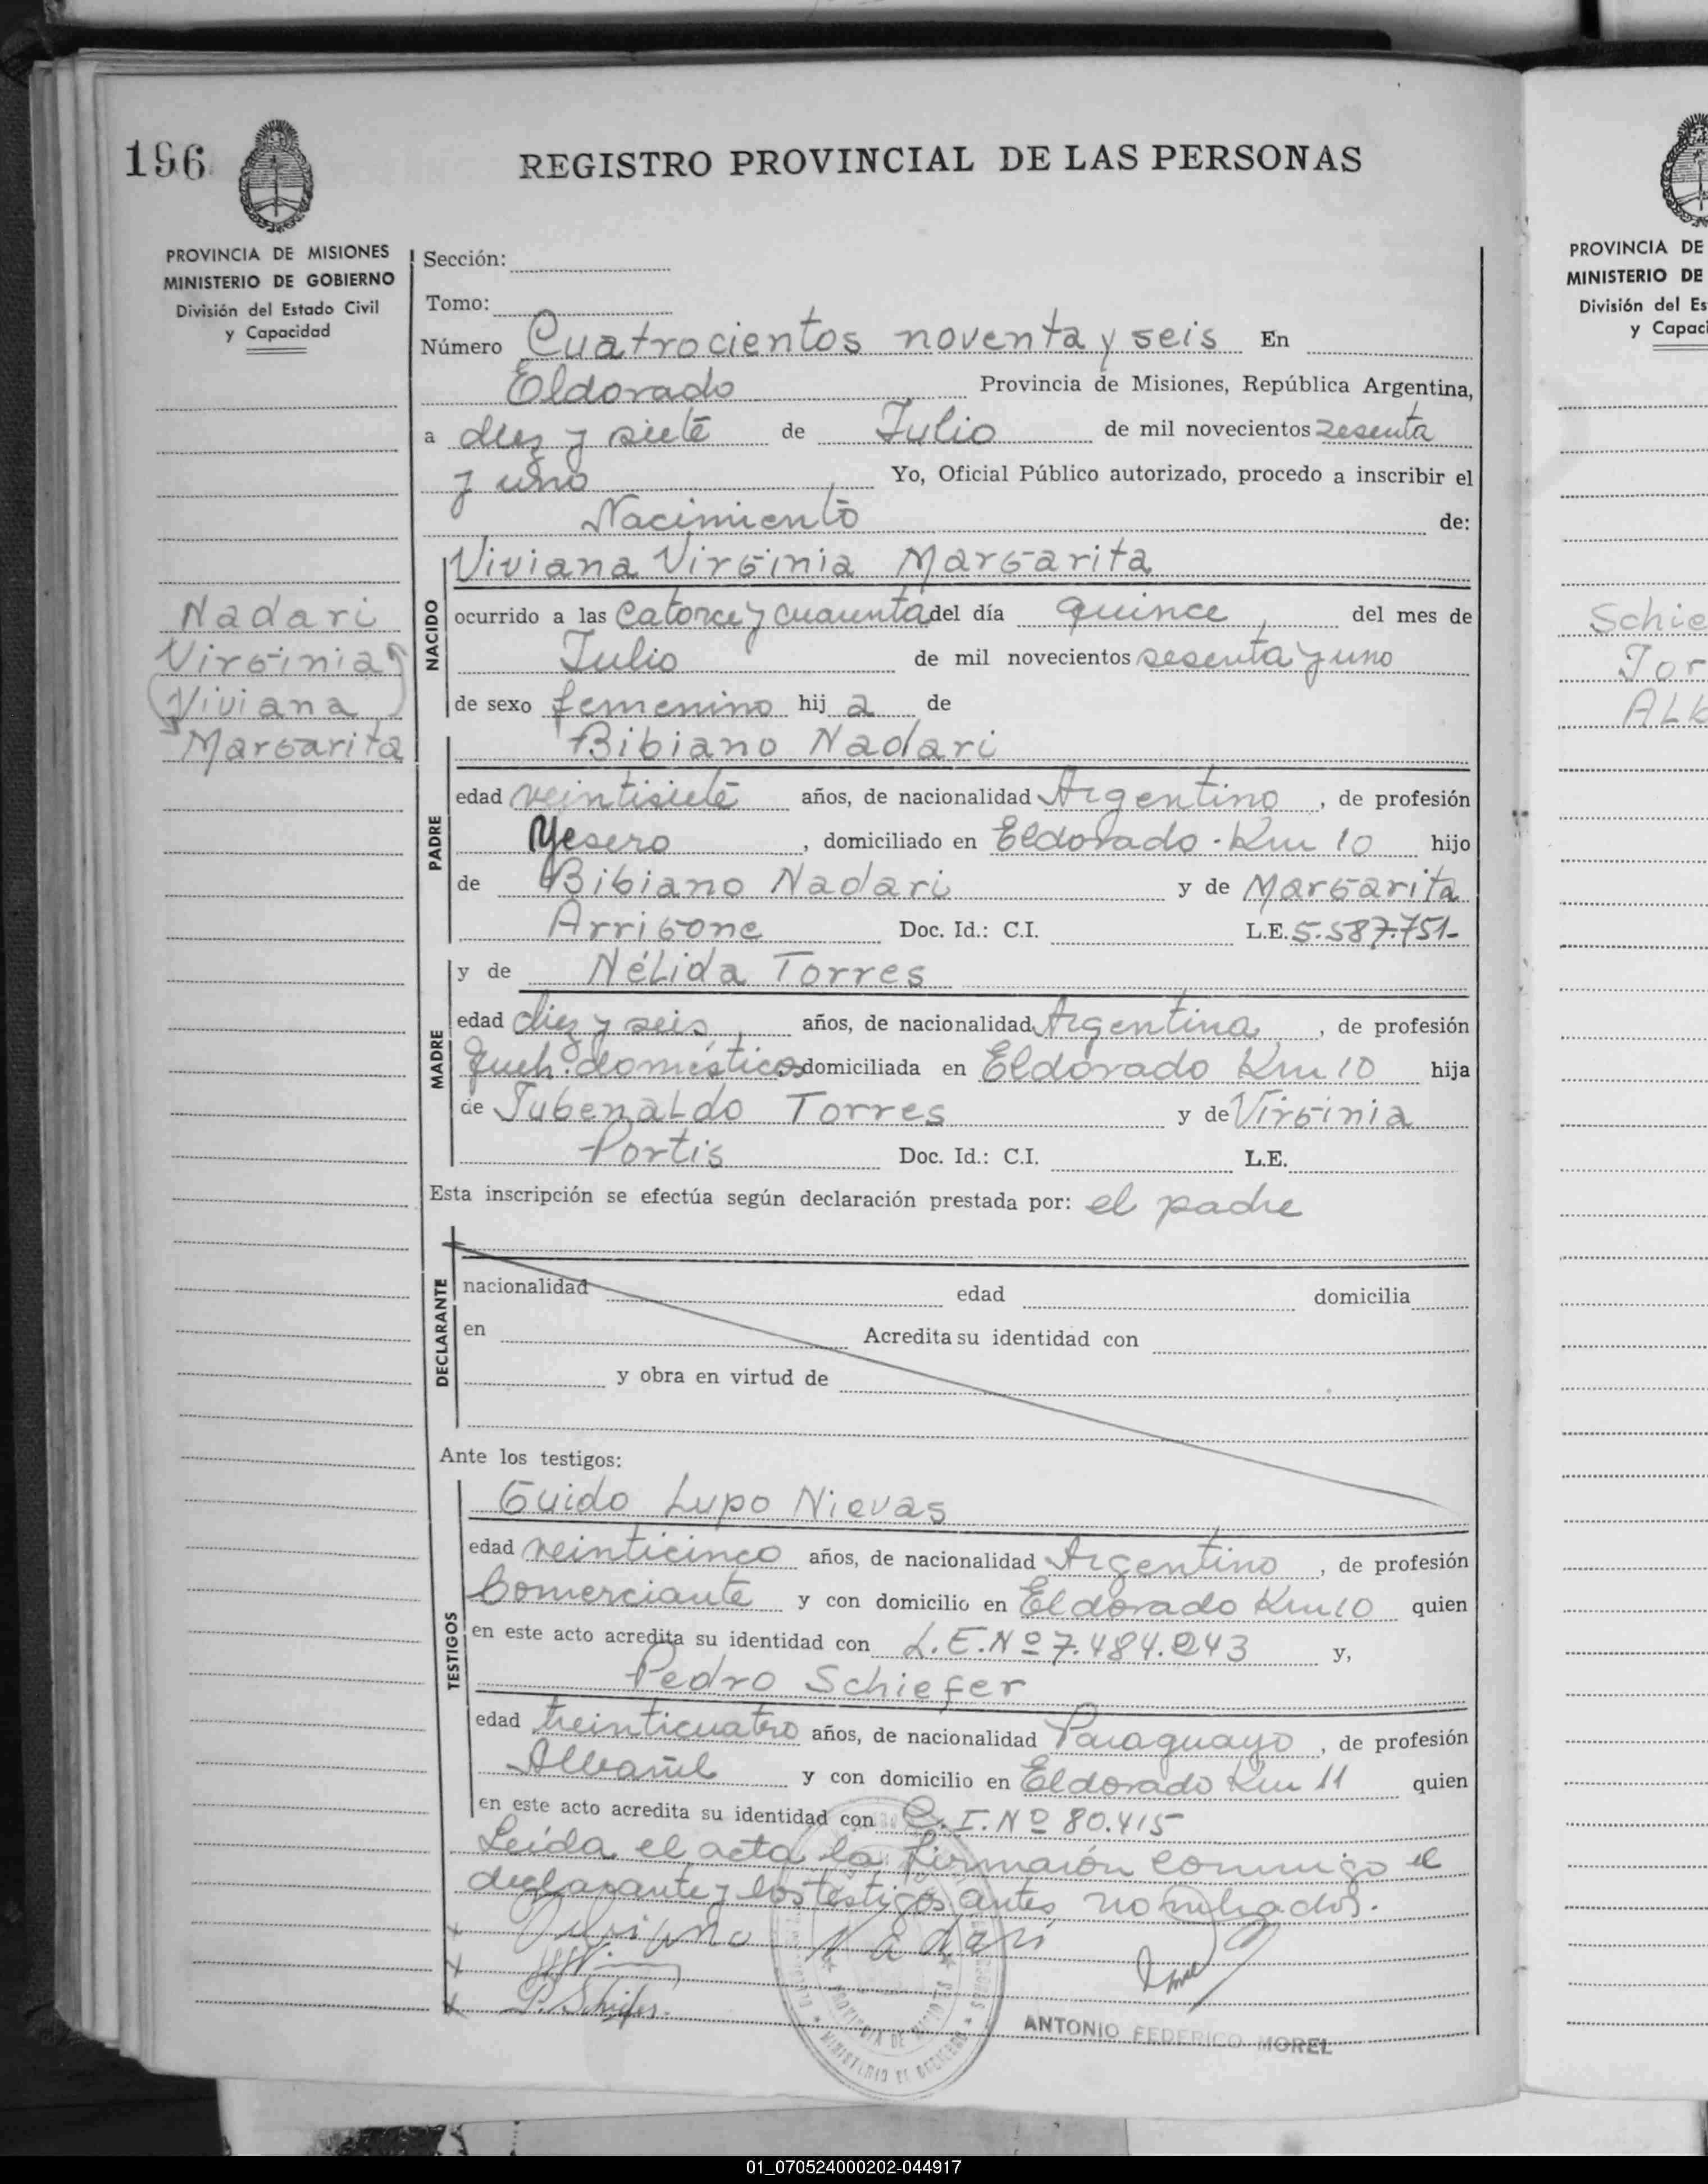 196
REGISTRO PROVINCIAL DE LAS PERSONAS
PROVINCIA DE MISIONES
MINISTERIO DE GOBIERNO
División del Estado Civil
y Capacidad
Nadari
Virginia
(Viviana)
Margarita
Sección:
Tomo:
Número Cuatrocientos noventa y seis En
Eldorado Provincia de Misiones, República Argentina,
a diez y siete de Julio de mil novecientos sesenta
y uno Yo, Oficial Público autorizado, procedo a inscribir el
Nacimiento de:
NACIDO
Viviana Virginia Margarita
ocurrido a las catorce y cuarenta del día quince, del mes de
Julio de mil novecientos sesenta y uno
de sexo femenino hij a de
Bibiano Nadari
PADRE
edad veintisiete años, de nacionalidad Argentino, de profesión
Yesero, domiciliado en Eldorado - Km 10 hijo
de Bibiano Nadari y de Margarita
Arrigone Doc. Id.: C.I. L.E. 5.587.751-
MADRE
y de Nélida Torres
edad diez y seis, años, de nacionalidad Argentina, de profesión
Queh. domésticos domiciliada en Eldorado Km 10 hija
de Jubenaldo Torres y de Virginia
Portis Doc. Id.: C.I. L.E.
Esta inscripción se efectúa según declaración prestada por: el padre
DECLARANTE
nacionalidad edad domicilia
en Acredita su identidad con
y obra en virtud de
Ante los testigos:
TESTIGOS
Guido Lupo Nievas
edad veinticinco años, de nacionalidad Argentino, de profesión
Comerciante y con domicilio en Eldorado Km 10 quien
en este acto acredita su identidad con L.E. Nº 7.484.243 y,
Pedro Schiefer
edad treinticuatro años, de nacionalidad Paraguayo, de profesión
Albañil y con domicilio en Eldorado Km 11 quien
en este acto acredita su identidad con C.I. Nº 80.415
Leída el acta la firmarón conmigo el
declarante y los testigos antes nombrados.
x Bibiano Nadari
x
x P. Schiefer
ANTONIO FEDERICO MOREL
PROVINCIA DE
MINISTERIO DE
División del Es
y Capaci
Schie
Tor
Alb
01_070524000202-044917